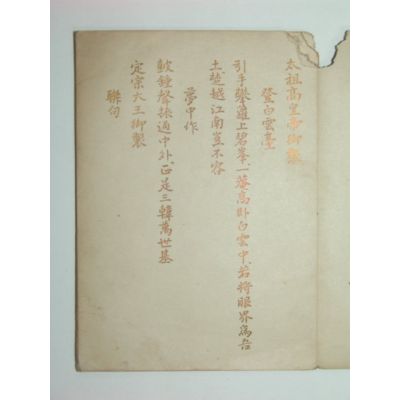 太祖高皇帝御製
登白雲臺
引手攀蘿上碧峯一菴高卧白雲中若将眼界爲吾
土楚越江南豈不容
夢中作
鼓鍾聲徹通中外正是三韓萬世基
定宗大王御製
聯句